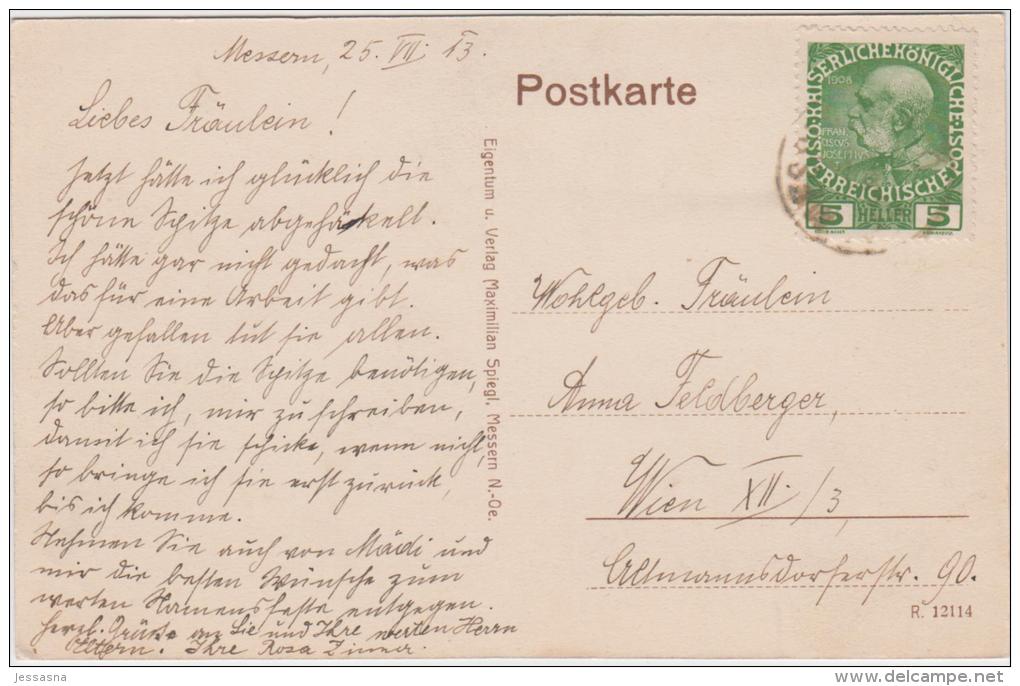 Messern, 25. VII. 13.
Liebes Fräulein!
Jetzt hätte ich glücklich die
schöne Spitze abgehäkelt.
Ich hätte gar nicht gedacht, was
das für eine Arbeit gibt.
Aber gefallen tut sie allen.
Sollten Sie die Spitze benötigen,
so bitte ich, mir zu schreiben,
damit ich sie schicke, wenn nicht,
so bringe ich sie erst zurück,
bis ich komme.
Nehmen Sie auch von Mädi und
mir die besten Wünsche zum
werten Namensfeste entgegen.
Herzl. Grüße an Sie und Ihre werten Herrn
Eltern. Ihre Rosa
Eigentum u. Verlag Maximilian Spiegl, Messern N.-Oe.
Postkarte
KAISERLICHEKÖNIGLICHE
ÖSTERREICHISCHE POST
1908
FRAN
CISCVS
JOSEPHVS
5 HELLER 5
Wohlgeb. Fräulein
Anna Feldberger,
Wien XII./3,
Altmannsdorferstr. 90.
R. 12114
jessasna
delcampe.net